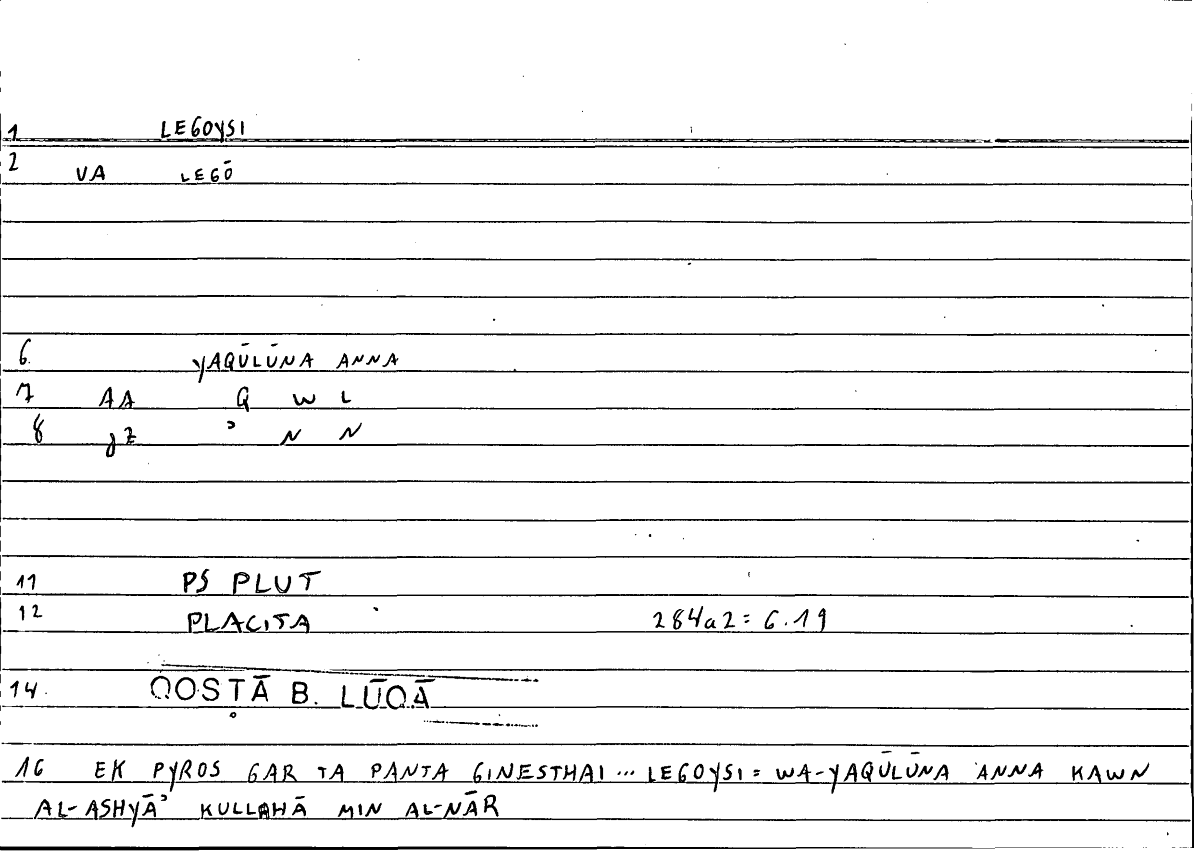 1 LEGOYSI
2 VA LEGŌ
6. YAQŪLŪNA ANNA
7 AA Q W L
8 JZ ʾ N N
11 PS PLUT
12 PLACITA 284a2 = 6.19
14. QOSṬĀ B. LŪQĀ
16 EK PYROS GAR TA PANTA GINESTHAI ... LEGOYSI = WA-YAQŪLŪNA ANNA KAWN
AL-ASHYĀʾ KULLAHĀ MIN AL-NĀR